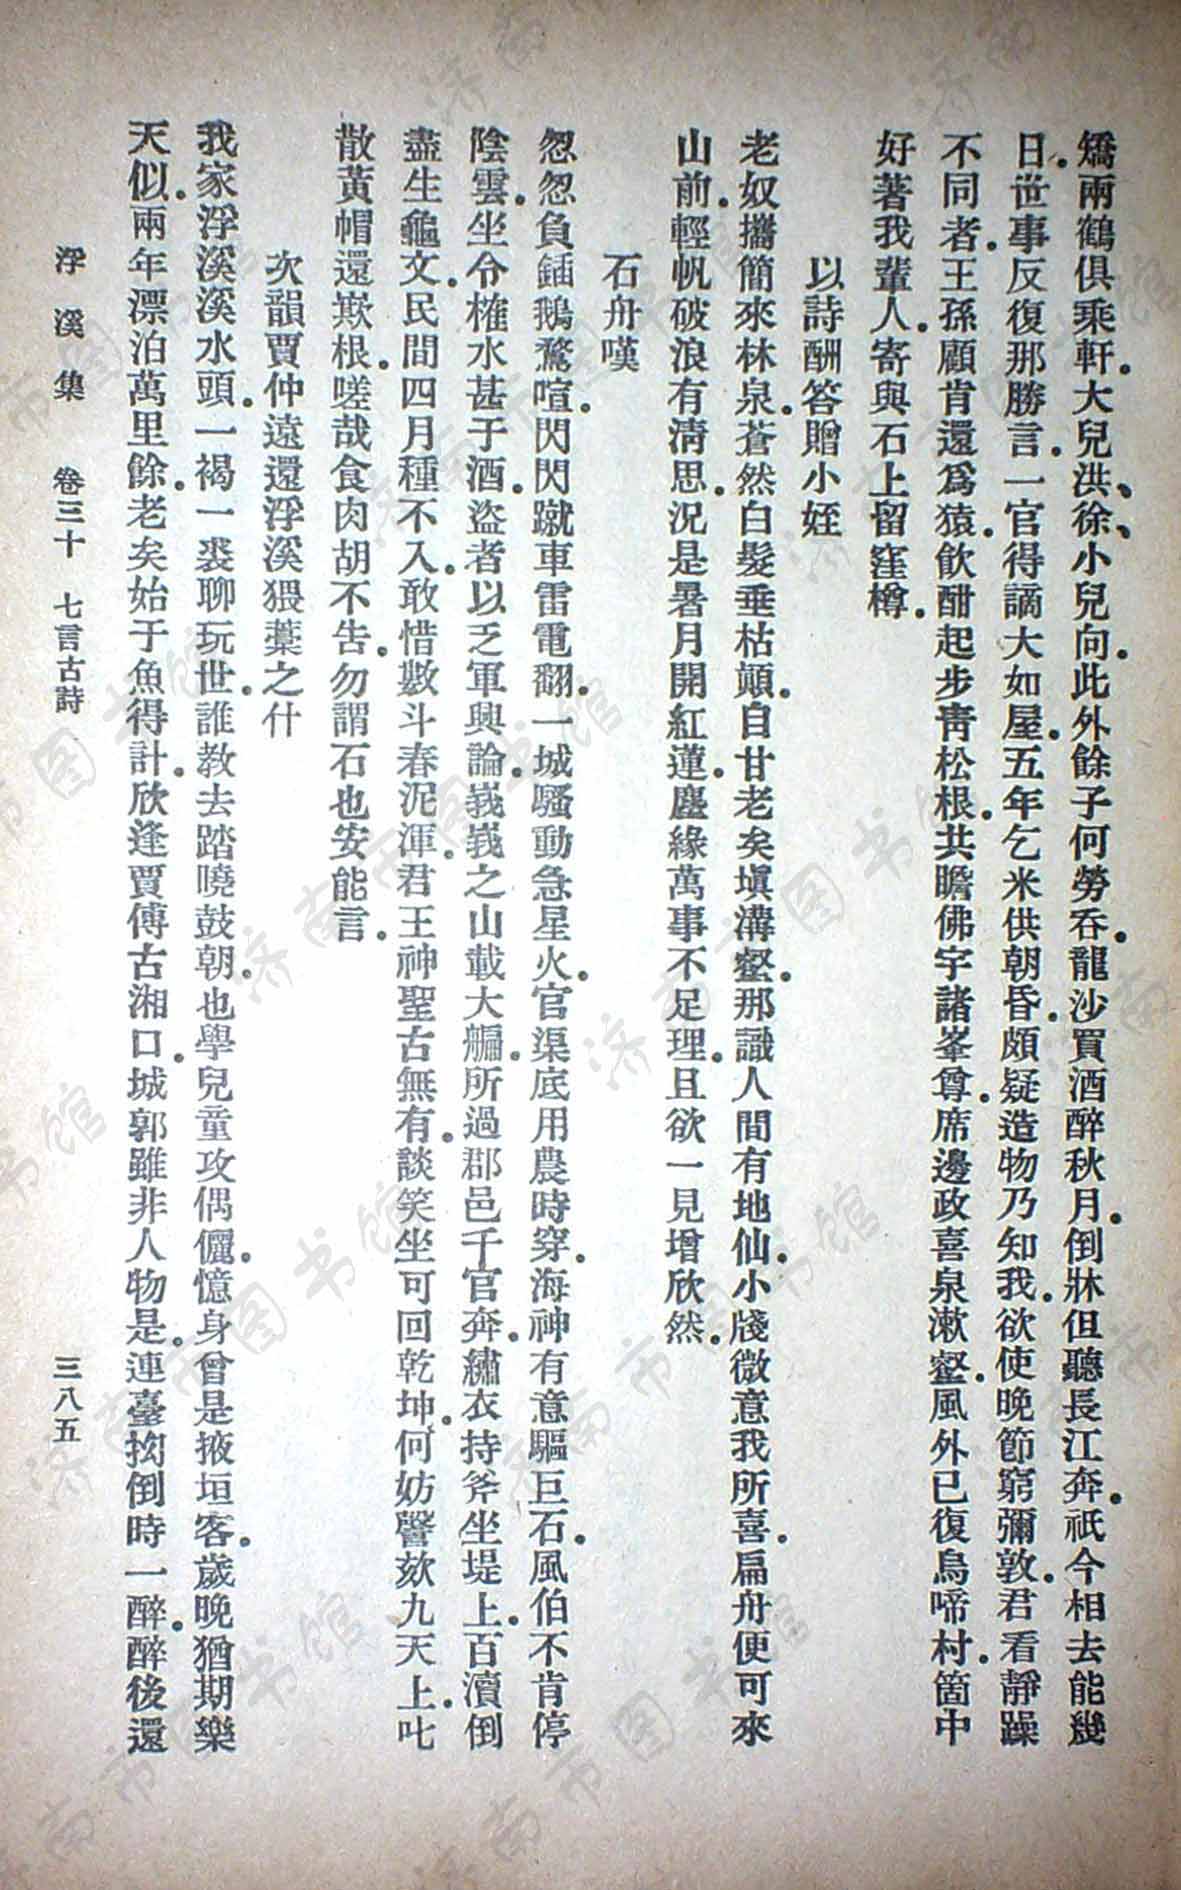 矯兩鶴俱乘軒。大兒洪、徐、小兒向。此外餘子何勞吞。龍沙買酒醉秋月。倒牀但聽長江奔。祇今相去能幾
日。世事反復那勝言。一官得謫大如屋。五年乞米供朝昏。頗疑造物乃知我。欲使晚節窮彌敦。君看靜躁
不同者。王孫顧肯還爲猿。飲酣起步靑松根。共瞻佛宇諸峯尊。席邊政喜泉漱壑。風外已復鳥啼村。箇中
好著我輩人。寄與石上留窪樽。
以詩酬答贈小姪
老奴攜簡來林泉。蒼然白髮垂枯顚。自甘老矣塡溝壑。那識人間有地仙。小牋微意我所喜。扁舟便可來
山前。輕帆破浪有淸思。況是暑月開紅蓮。塵緣萬事不足理。且欲一見增欣然。
石舟嘆
怱怱負鍤鵝鶩喧。閃閃蹴車雷電翻。一城騷動急星火。官渠底用農時穿。海神有意驅巨石。風伯不肯停
陰雲。坐令榷水甚于酒。盜者以乏軍興論。峩峩之山載大艑。所過郡邑千官奔。繡衣持斧坐堤上。百瀆倒
盡生龜文。民間四月種不入。敢惜數斗春泥渾。君王神聖古無有。談笑坐可回乾坤。何妨謦欬九天上。叱
散黃帽還欺根。嗟哉食肉胡不告。勿謂石也安能言。
次韻賈仲遠還浮溪猥藁之什
我家浮溪溪水頭。一褐一裘聊玩世。誰教去踏曉鼓朝。也學兒童攻偶儷。憶身曾是掖垣客。歲晚猶期樂
天似。兩年漂泊萬里餘。老矣始于魚得計。欣逢賈傅古湘口。城郭雖非人物是。連臺拗倒時一醉。醉後還
浮溪集 卷三十 七言古詩 三八五
济南市图书馆